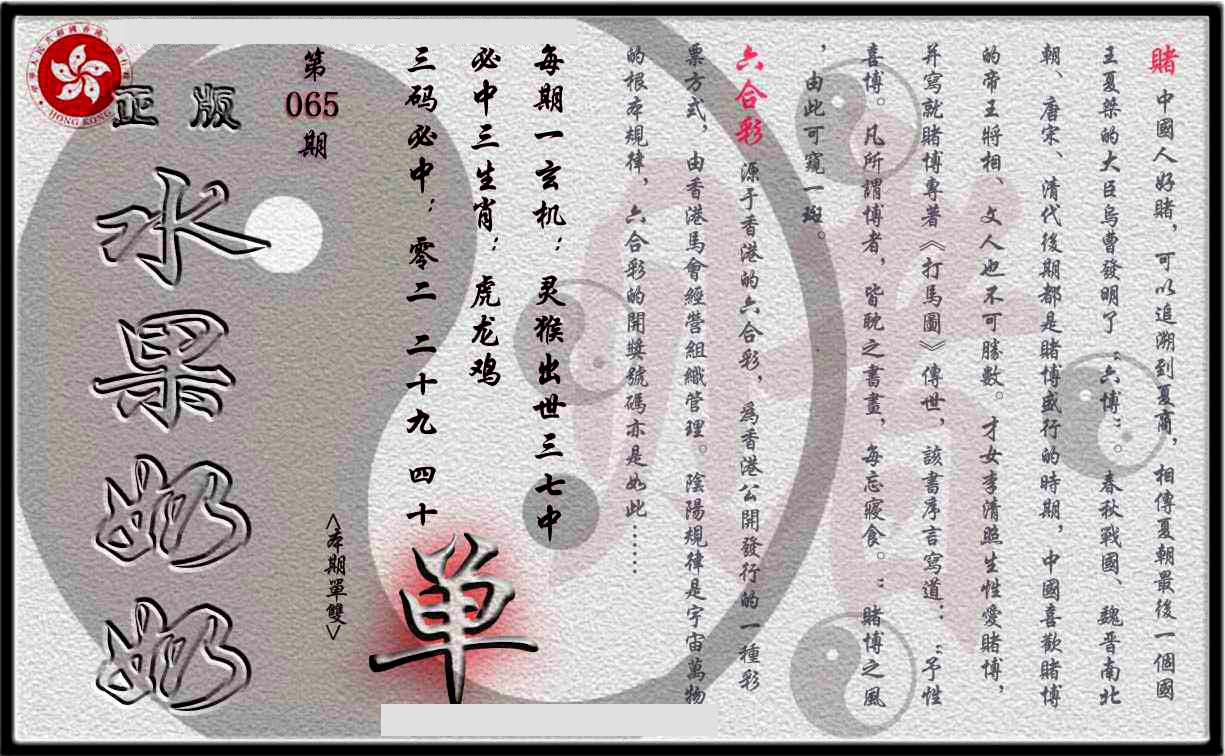 賭 中國人好賭，可以追溯到夏商，相傳夏朝最後一個國
王夏桀的大臣烏曹發明了“六博”。春秋戰國、魏晋南北
朝、唐宋、清代後期都是賭博盛行的時期，中國喜歡賭博
的帝王將相、文人也不可勝數。才女李清照生性愛賭博，
并寫就賭博專著《打馬圖》傳世，該書序言寫道：“予性
喜博。凡所謂博者，皆耽之書晝，每忘寢食。”賭博之風
，由此可窺一斑。
六合彩 源于香港的六合彩，為香港公開發行的一種彩
票方式，由香港馬會經營組織管理。陰陽規律是宇宙萬物
的根本規律，六合彩的開獎號碼亦是如此……
每期一玄机：灵猴出世三七中
必中三生肖：虎龙鸡
三码必中：零二 二十九 四十
单
<本期單雙>
第
065
期
正版
水果奶奶
HONG KONG